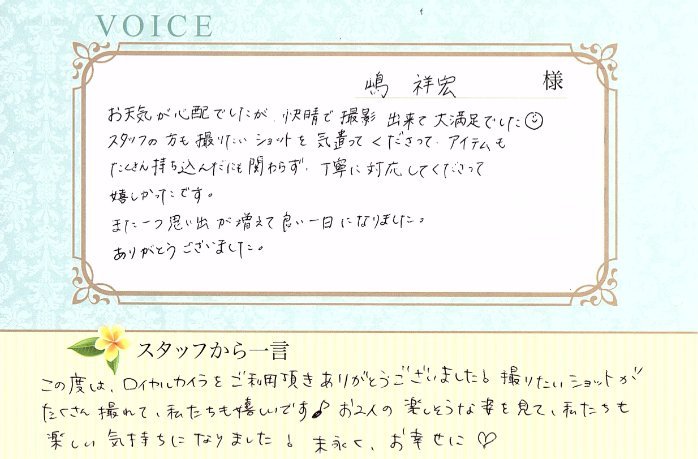 VOICE
嶋 祥宏 様
お天気が心配でしたが、快晴で撮影出来て大満足でした☺
スタッフの方も撮りたいショットを気遣ってくださって、アイテムも
たくさん持ち込んだにも関わらず、丁寧に対応してくださって
嬉しかったです。
また一つ思い出が増えて良い一日になりました。
ありがとうございました。
スタッフから一言
この度は、ロイヤルカイラをご利用頂きありがとうございました!撮りたいショットが
たくさん撮れて、私たちも嬉しいです♪お2人の楽しそうな姿を見て、私たちも
楽しい気持ちになりました!末永く、お幸せに♡